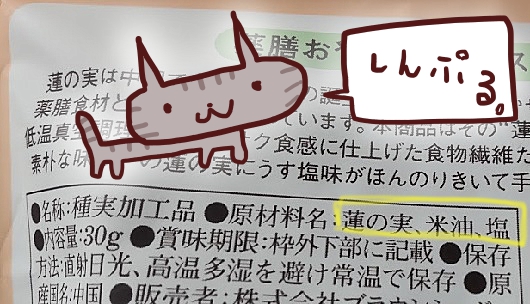 薬膳お
しんぷる。
蓮の実は中
薬膳食材と
の
低温真空調理
ています。本商品はその"蓮
ク食感に仕上げた食物繊維た
素朴な味
の蓮の実にうす塩味がほんのりきいて手
●名称:種実加工品 ●原材料名:蓮の実、米油、塩
●内容量:30g ●賞味期限:枠外下部に記載 ●保存
方法:直射日光、高温多湿を避け常温で保存 ●原
産国名:中国 ●販売者:株式会社